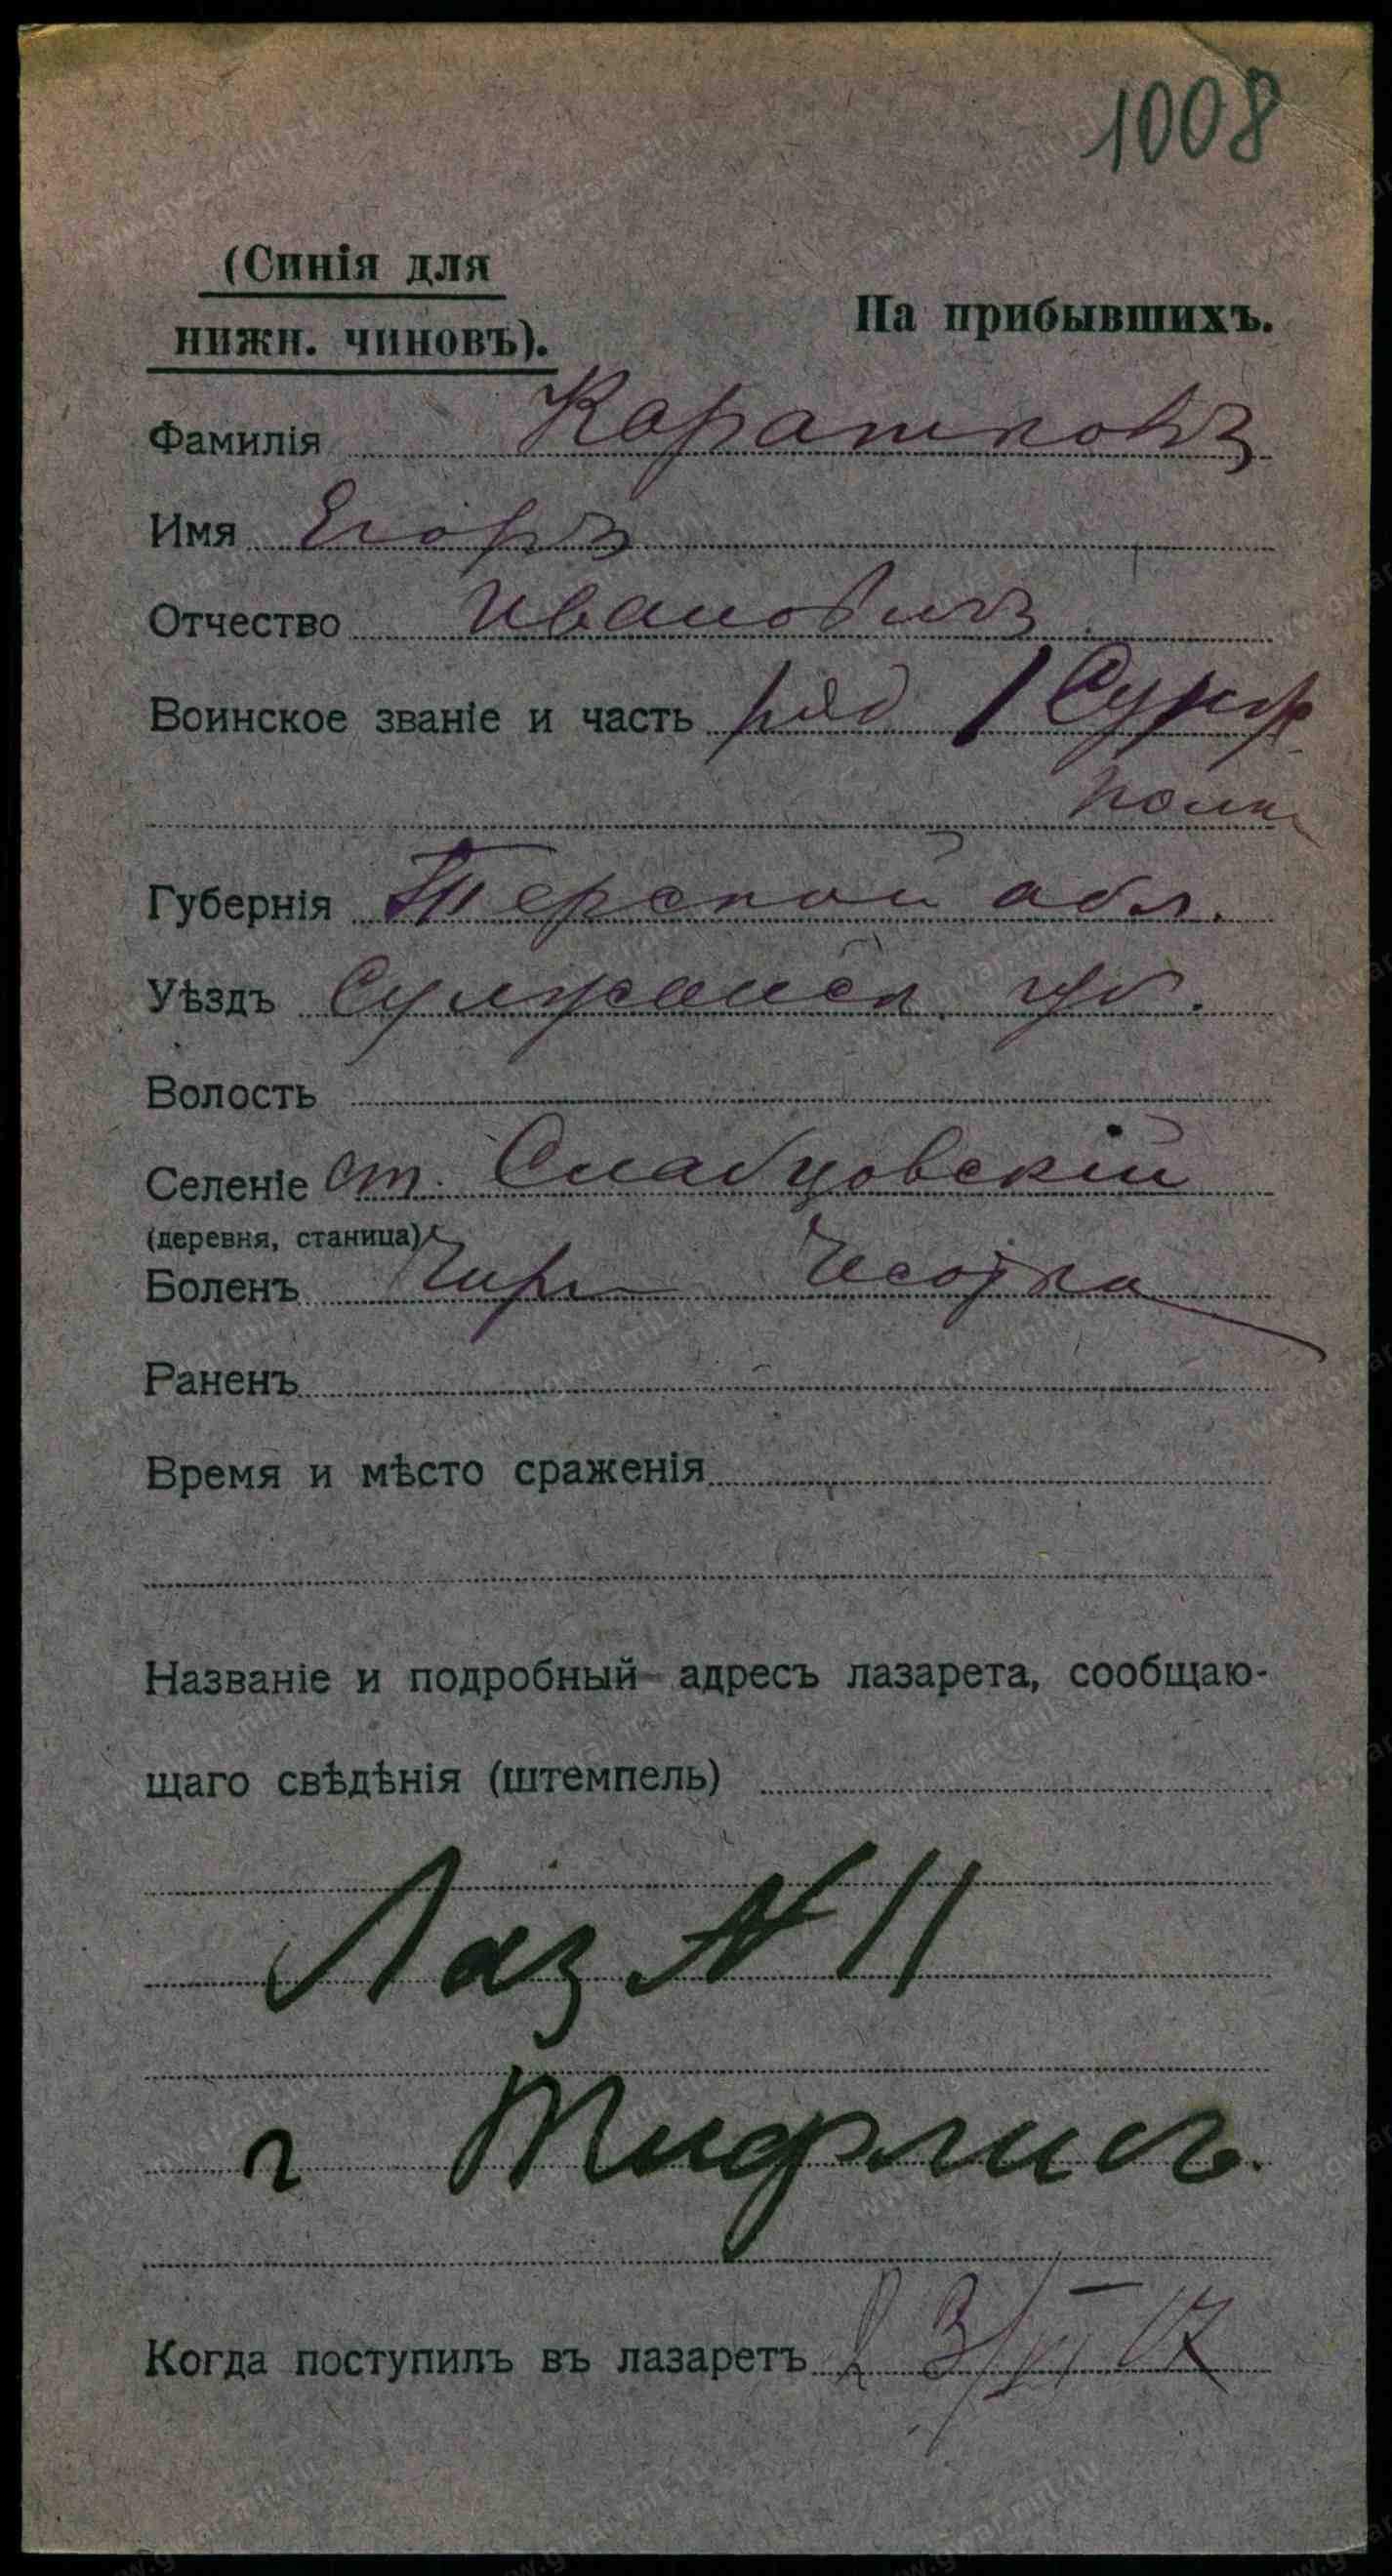 1008
(Синія для
нижн. чиновъ).
На прибывшихъ.
Фамилія Каратковъ
Имя Егоръ
Отчество Ивановичъ
Воинское званіе и часть ряд 1 Сунж
полк
Губернія Терской обл.
Уѣздъ Сунженск
Волость
Селеніе ст. Слабцовскій
(деревня, станица)
Боленъ Чири Чесотка
Раненъ
Время и мѣсто сраженія
Названіе и подробный адресъ лазарета, сообщаю-
щаго свѣдѣнія (штемпель)
Лаз N 11
г Тифлисъ.
Когда поступилъ въ лазаретъ 3/VI 17